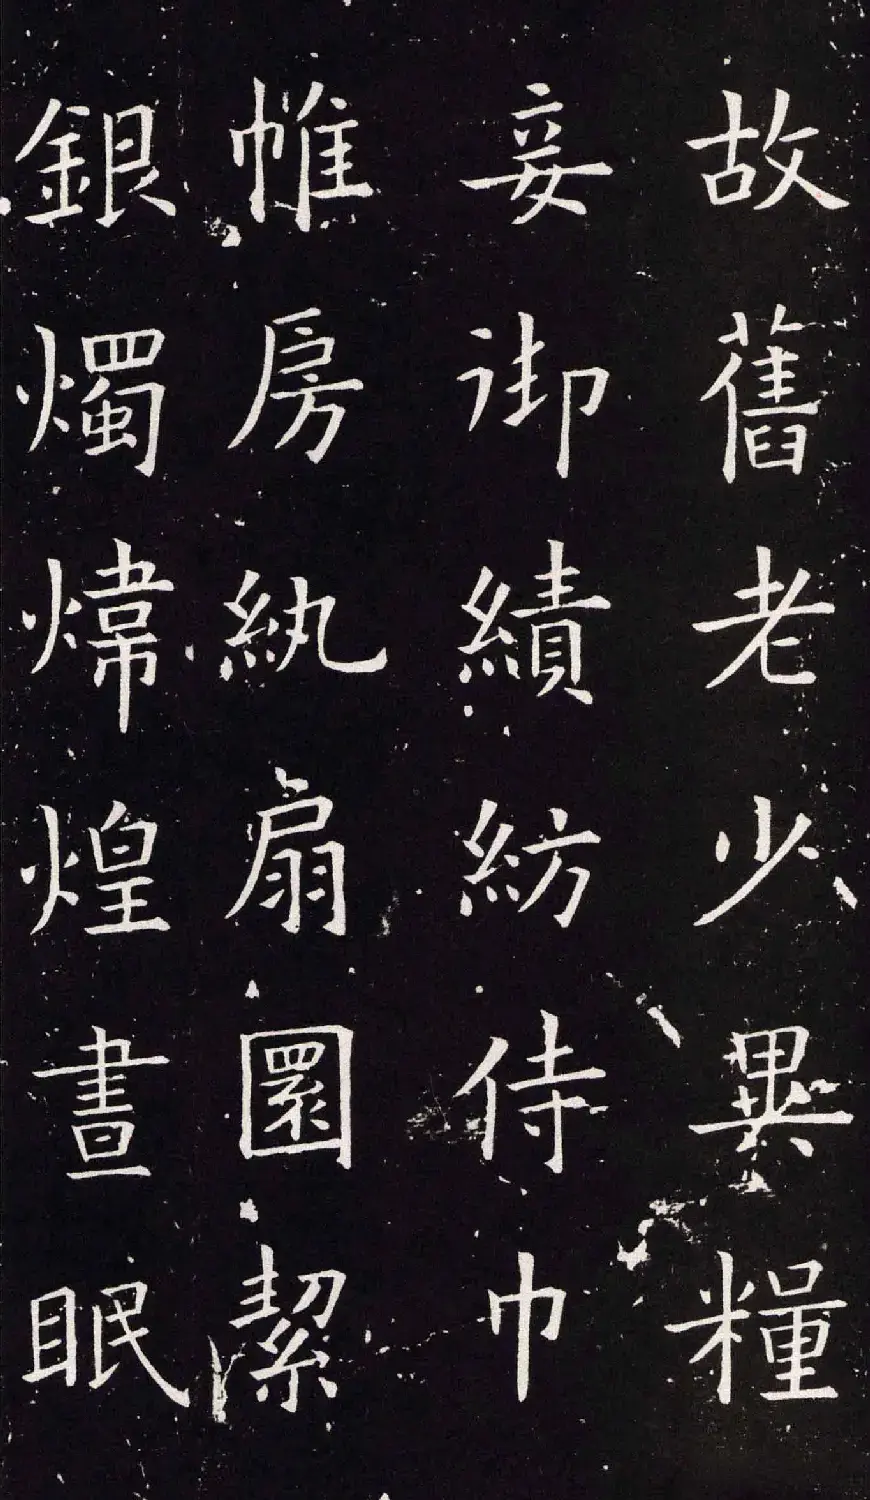 故舊老少異糧
妾御績紡侍巾
帷房紈扇圜潔
銀燭煒煌晝眠